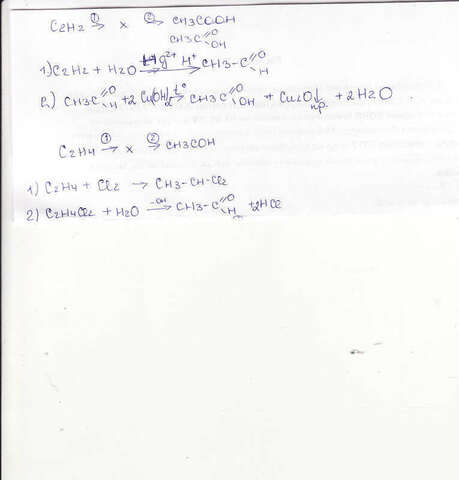 C2H2 ①→ x ②→ CH3COOH
CH3C=O OH
1) C2H2 + H2O Hg2+ H+ → CH3-C=O H
2) CH3C=O H + 2 Cu(OH)2 t° → CH3C=O OH + Cu2O↓ + 2H2O
C2H4 ①→ x ②→ CH3COH
1) C2H4 + Cl2 → CH3-CH-Cl2
2) C2H4Cl2 + H2O -OH → CH3-C=O H + 2HCl